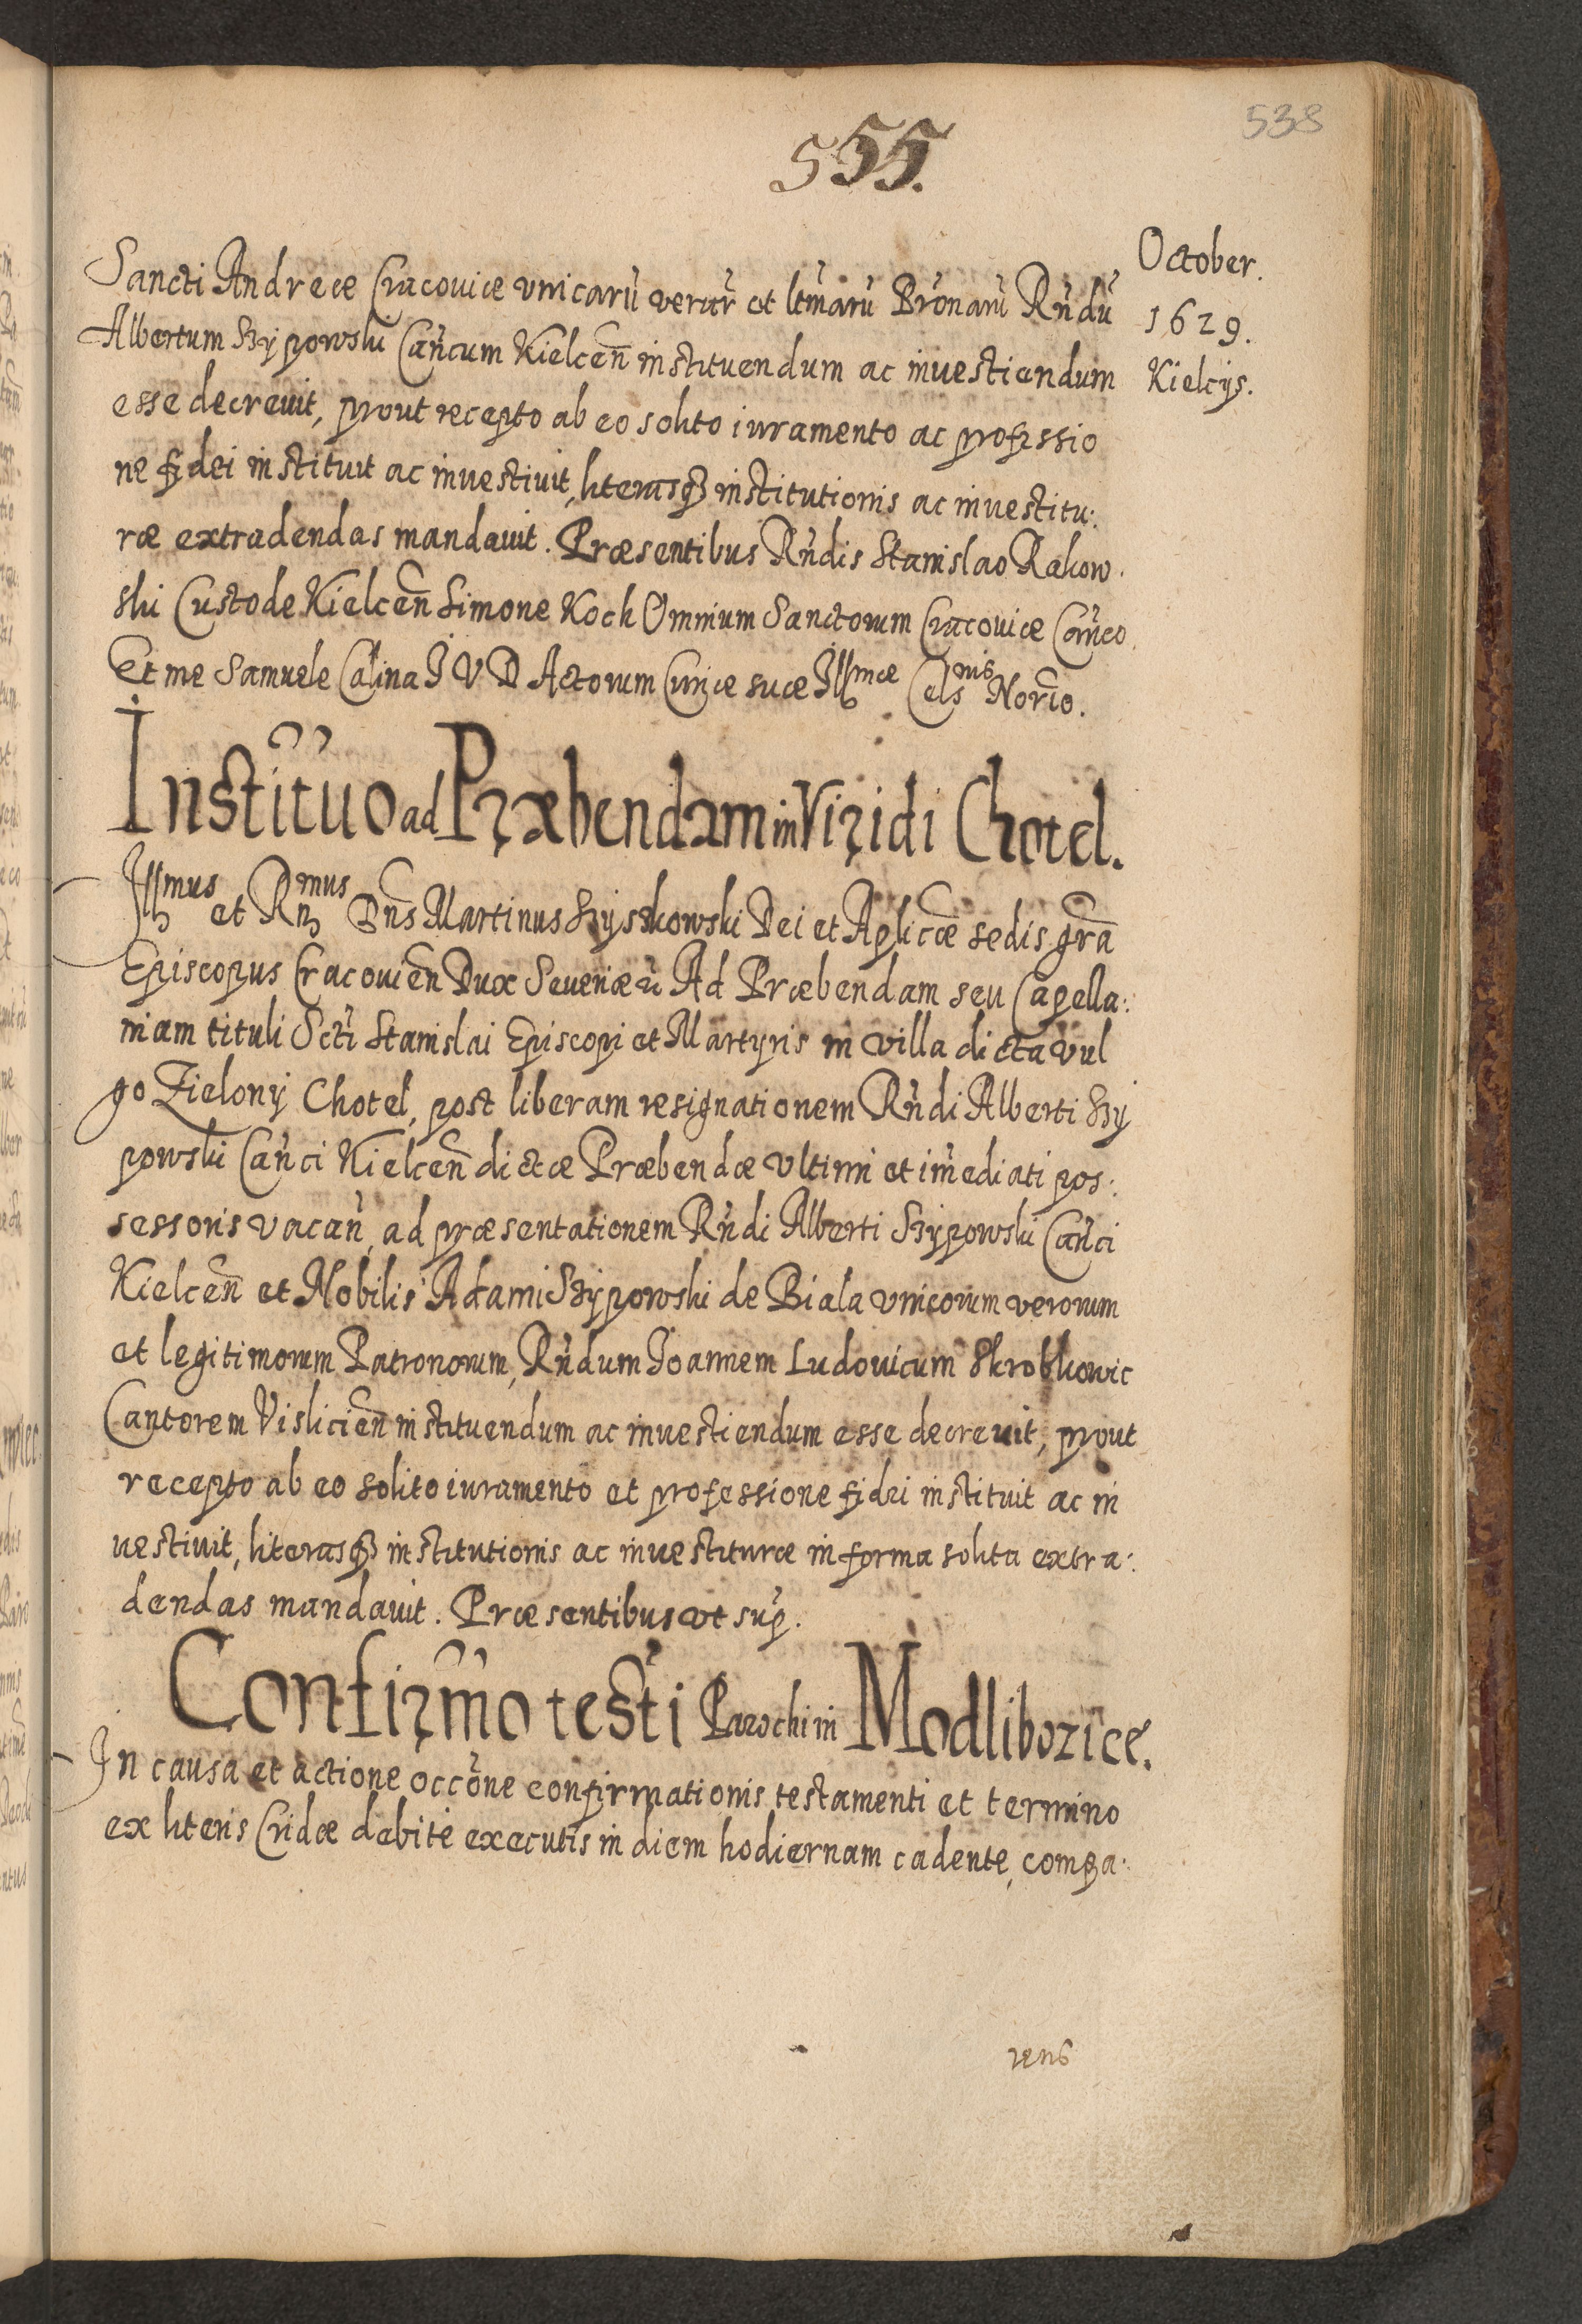 538
555.
October.
1629.
Kielcijs.
Sancti Andreæ Cracouiæ vnicarũ verar̃ et ltm̃arũ Pr̃onarũ Rñdũ
Albertum Szypowski Cañcum Kielceñ instituendum ac inuestiendum
esse decreuit, prout recepto ab eo solito iuramento ac professio
ne fidei instituit ac inuestiuit, literasq3 institutionis ac inuestitu:
ræ extradendas mandauit. Præsentibus Rñdis Stanislao Rakow.
ski Custode Kielceñ Simone Koch Omnium Sanctorum Cracouiæ Cañco.
Et me Samuele Calina J V D Actorum Curiæ suæ Jllmæ Celsnis Norĩo.
Institũo ad Præbendam in Viridi Chotel.
Jllmus et Rñmus Dñs Martinus Szyszkowski Dei et Aplicæ sedis gr̃a
Episcopus Cracouieñ Dux Seueriæ &c Ad Præbendam seu Capella:
niam tituli Scti Stanislai Episcopi et Martyris in villa dicta vul
go Zielony Chotel, post liberam resignationem Rñdi Alberti Szy
powski Cañci Kielceñ dictæ Præbendæ vltimi et im̃ediati pos:
sessoris vacañ, ad præsentationem Rñdi Alberti Szypowski Cañci
Kielceñ et Nobilis Adami Szypowski de Biala vnicorum verorum
et legitimorum Patronorum, Rñdum Joannem Ludouicum Skrobkowic
Cantorem Visliciеñ instituendum ac inuestiendum esse decreuit, prout
recepto ab eo solito iuramento et professione fidei instituit ac in
uestiuit, literasq3 institutionis ac inuestituræ in forma solita extra:
dendas mandauit. Præsentibus vt sup.
Confirm̃o testi Parochi in Modliborice.
In causa et actione occõne confirmationis testamenti et termino
ex literis Cridæ debitè executis in diem hodiernam cadente, compa:
rens